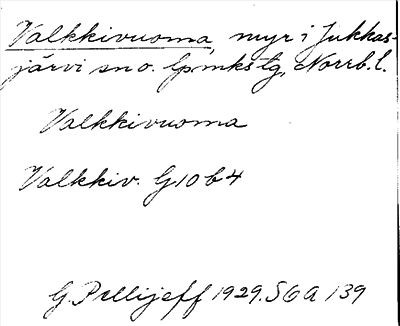 Valkkivuoma, myr i Jukkas-
järvi sn o. lpmkstg, Norrb. l.
Valkkivuoma
Valkkiv. G10b4
G. Pellijeff 1929. SOA 139